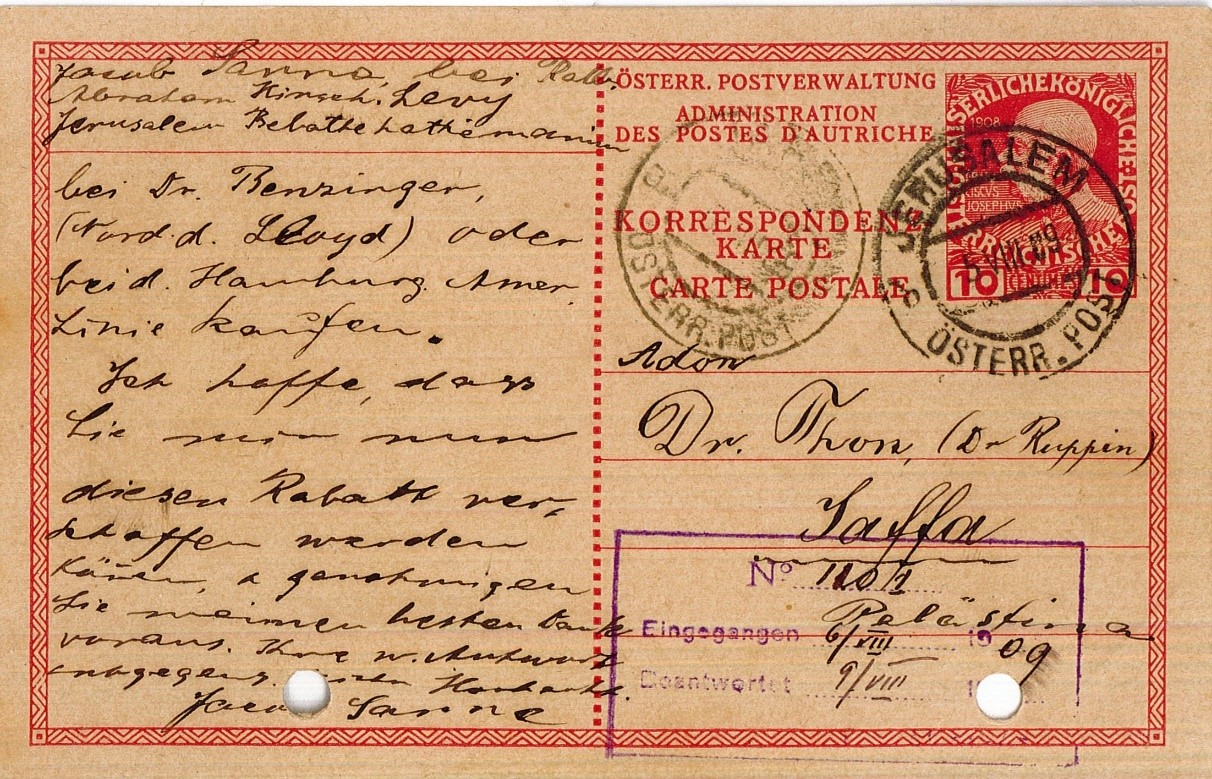 Jacob Sanne, bei Rabb.
Abraham Hirsch. Levy
Jerusalem
bei Dr. Benzinger,
(Nord. d. Lloyd) oder
bei d. Hamburg. Amer.
Linie kaufen.
Ich hoffe, dass
Sie mir nun
diesen Rabatt ver-
schaffen werden
können, & genehmigen
Sie meinen besten Dank
voraus. Ihre w. Antwort
Jacob Sanne
ÖSTERR. POSTVERWALTUNG
ADMINISTRATION
DES POSTES D'AUTRICHE
KORRESPONDENZ-
KARTE
CARTE POSTALE
1908
10 10
JERUSALEM
5 VIII 09
ÖSTERR. POST
ÖSTERR. POST
Adon
Dr. Thon, (Dr Ruppin)
Jaffa
Palästina
No 1101/1
Eingegangen 6/VIII 1909
Beantwortet 9/VIII